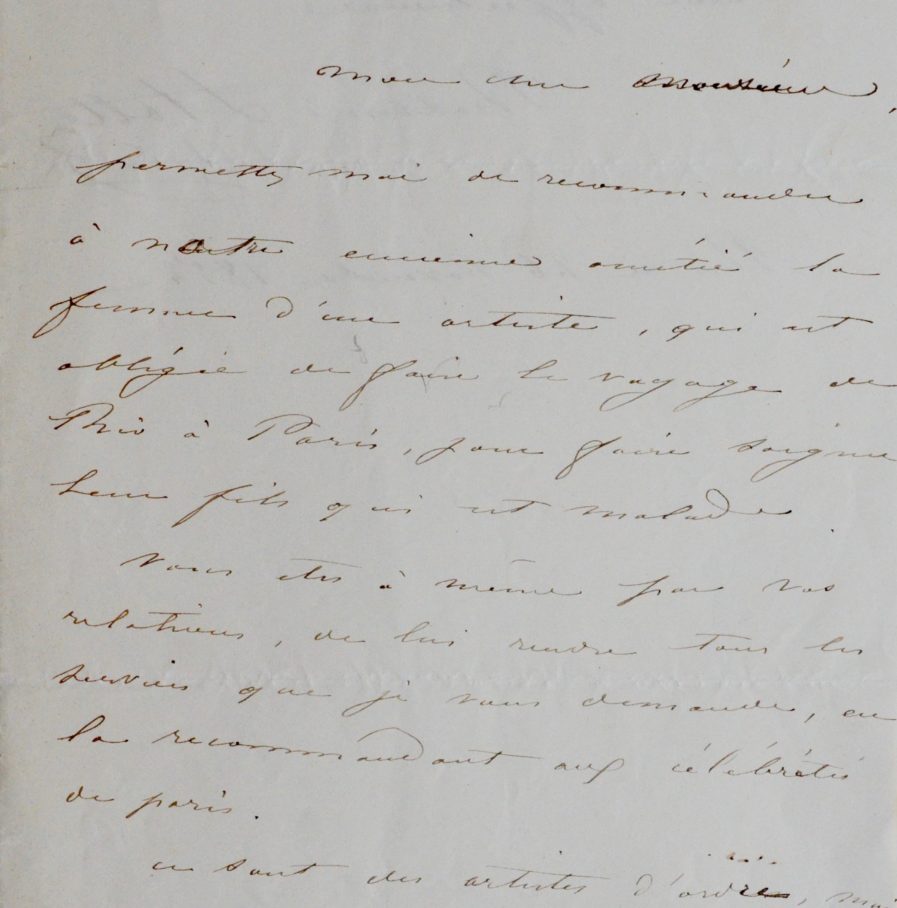 mon cher monsieur,
permettez moi de recommander
à notre ancienne amitié la
femme d'une artiste, qui est
obligée de faire le voyage de
Rio à Paris, pour faire soigner
leur fils qui est malade.
Vous etes à même par vos
relations, de lui rendre tous les
services que je vous demande, en
la recommandant aux célébrités
de paris.
ce sont des artistes d'ordre,